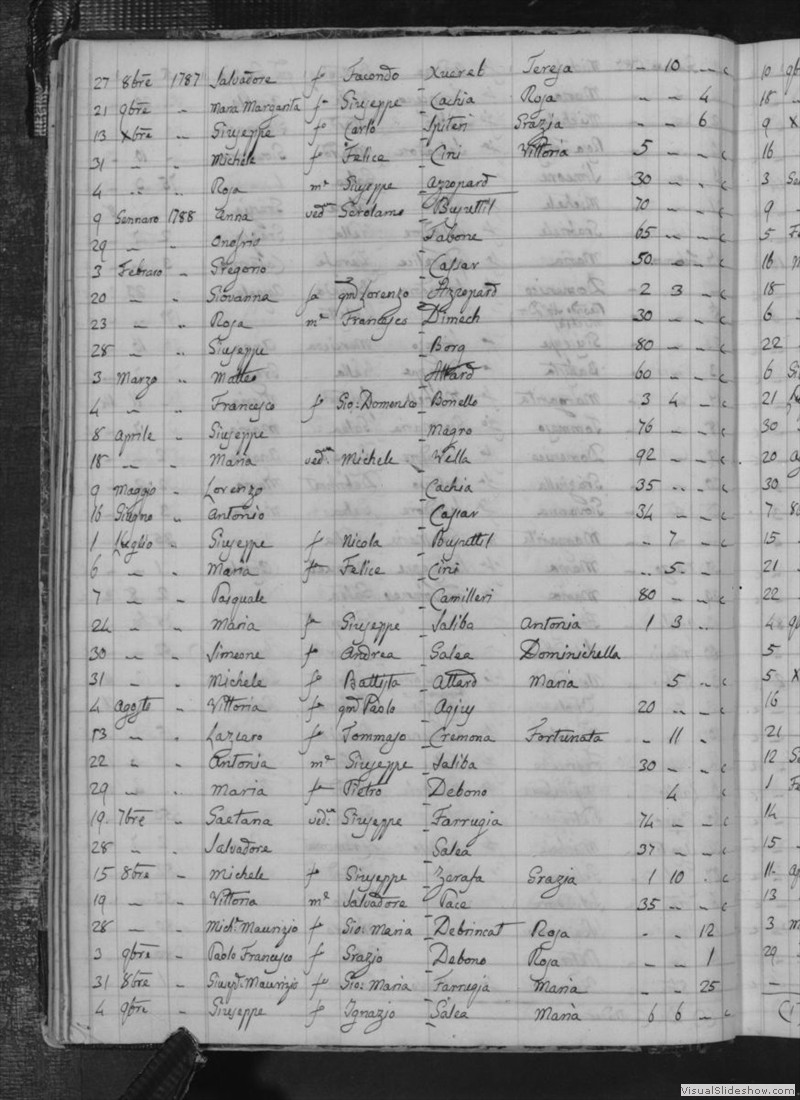 27 8bre 1787 Salvadore f Facondo Xuereb Teresa - 10 - c
21 9bre " Maria Margarita f Giuseppe Cachia Rosa - - 4
13 Xbre " Giuseppe f Carlo Spiteri Grazia - - 6
31 " " Michele f Felice Cini Vittoria 5 - - c
4 " " Rosa me Giuseppe Azzopard 30 - - c
9 Gennaro 1788 Anna ved. Gerolamo Busuttil 70 - - c
29 " " Onofrio Fabone 65 - - c
3 Febraro " Gregorio Cassar 50 - - c
20 " " Giovanna fa qm Lorenzo Azzopard 2 3 - c
23 " " Rosa me Francesco Dimech 30 - - c
28 " " Giuseppe Borg 80 - - c
3 Marzo " Matteo Attard 60 - - c
4 " " Francesco f Gio: Domenico Bonello 3 4 - c
8 Aprile " Giuseppe Magro 76 - - c
18 " " Maria ved. Michele Vella 92 - - c
9 Maggio " Lorenzo Cachia 35 - - c
16 Giugno " Antonio Cassar 34 - - c
1 Luglio " Giuseppe f Nicola Busuttil - 7 - c
6 " " Maria f Felice Cini - 5 -
7 " " Pasquale Camilleri 80 - - c
24 " " Maria f Giuseppe Saliba Antonia 1 3 -
30 " " Simeone f Andrea Galea Dominichella
31 " " Michele f Battista Attard Maria 5 - c
4 Agosto " Vittoria f qm Paolo Agius 20 - - c
13 " " Lazzaro f Tommaso Cremona Fortunata - 11 -
22 " " Antonia me Giuseppe Saliba 30 - - c
29 " " Maria f Pietro Debono 4 - c
19 7bre " Gaetana ved. Giuseppe Farrugia 74 - - c
28 " " Salvadore Galea 37 - - c
15 8bre " Michele f Giuseppe Zerafa Grazia 1 10 - c
19 " " Vittoria me Salvadore Pace 35 - - c
28 " " Mich. Maurizio f Gio: Maria Debrincat Rosa - - 12
3 9bre " Paolo Francesco f Grazio Debono Rosa - - 1
31 8bre " Giusp. Maurizio f Gio: Maria Farrugia Maria - - 25
4 9bre " Giuseppe f Ignazio Galea Maria 6 6 - c
VisualSlideshow.com